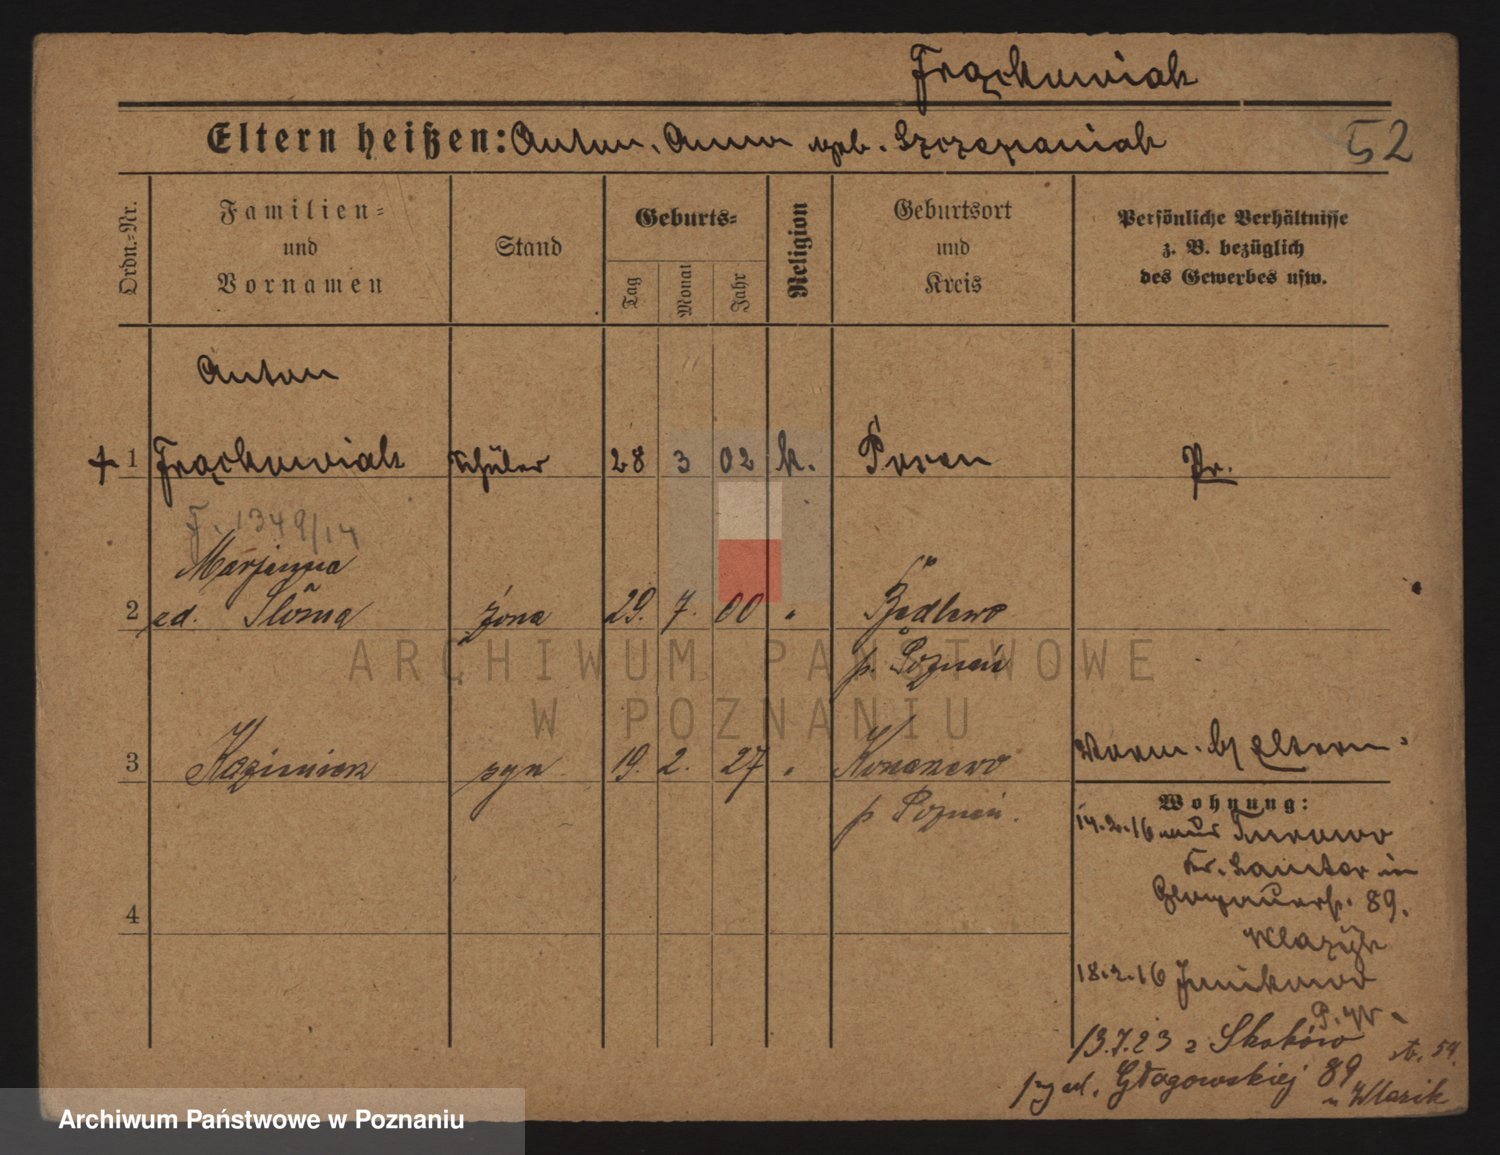 Frąckowiak
Eltern heißen: Anton, Anna geb. Szczepaniak
52
Ordn.=Nr.
Familien=
und
Vornamen
Stand
Geburts=
Tag
Monat
Jahr
Religion
Geburtsort
und
Kreis
Persönliche Verhältnisse
z. B. bezüglich
des Gewerbes usw.
Anton
+ 1 Frąckowiak Schüler 28 3 02 k. Posen Pr.
F. 1349/14
Marjanna
2 żona 29. 7. 00 "
p. Poznań
3 Kazimierz syn 19. 2. 27 "
p Poznań.
Eltern
Wohnung:
14.2.16 aus
in
Glogauerstr. 89.
18.2.16 Junikowo
13.7.23 z Skoków
Głogowskiej 89
4
ARCHIWUM PAŃSTWOWE
W POZNANIU
Archiwum Państwowe w Poznaniu